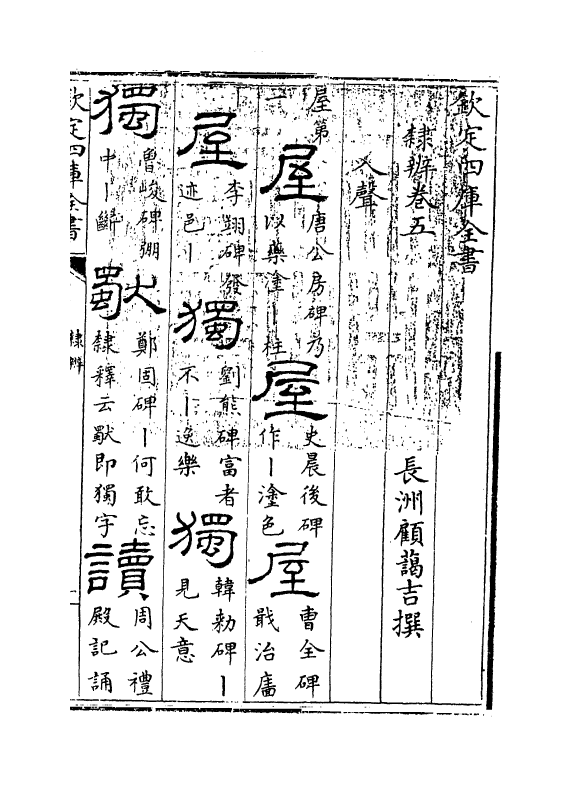 欽定四庫全書
隸辨卷五
長洲顧藹吉撰
入聲
屋第一
屋唐公房碑為以藥塗丨柱屋史晨後碑作丨塗色屋曹全碑戢治廧
屋李翊碑發迹邑丨獨劉熊碑富者不丨逸樂獨韓勑碑丨見天意
獨魯峻碑彌中丨斷㹤鄭固碑丨何敢忘隸釋云㹤即獨字讀周公禮殿記誦
欽定四庫全書
隸辨